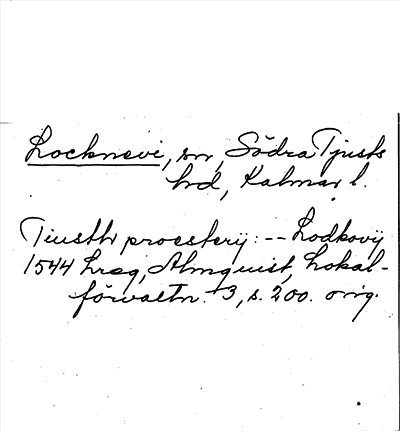 Locknevi, sn, Södra Tjusts
hd, Kalmar l.
Tiusth proesterij: -- Lodkovij
1544 hreg, Almquist, Lokal-
förvaltn. 3, s. 200. orig.